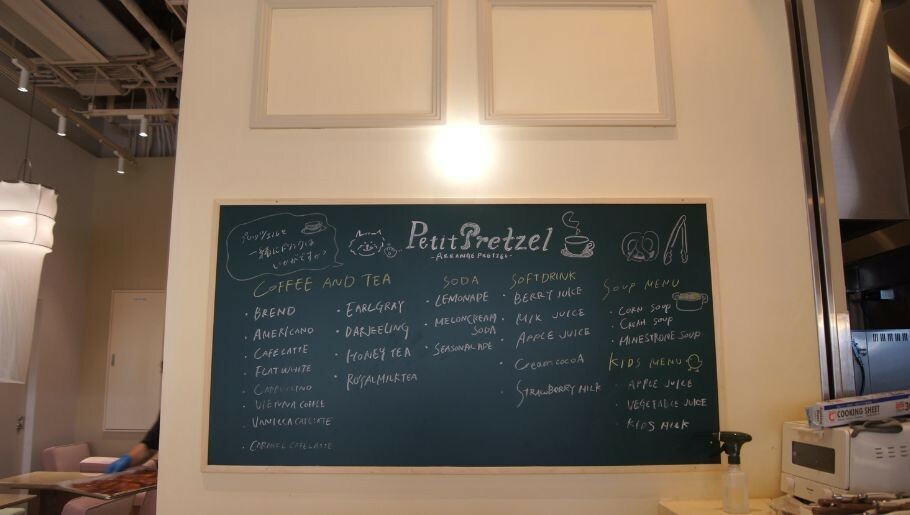 プレッツェルと
一緒にドリンクは
いかがですか?
Petit Pretzel
- ARRANGE PRETZEL -
COFFEE AND TEA
• BREND
• AMERICANO
• CAFE LATTE
• FLAT WHITE
• CAPPUCCINO
• VIENNA COFFEE
• VANILLA CAFE LATTE
• CARAMEL CAFE LATTE
• EARLGRAY
• DARJEELING
• HONEY TEA
• ROYAL MILK TEA
SODA
• LEMONADE
• MELONCREAM
SODA
• SEASONAL ADE
SOFT DRINK
• BERRY JUICE
• MILK JUICE
• APPLE JUICE
• Cream cocoA
• STRAWBERRY MILK
SOUP MENU
• CORN SOUP
• CREAM SOUP
• MINESTRONE SOUP
KIDS MENU
• APPLE JUICE
• VEGETABLE JUICE
• KIDS MILK
COOKING SHEET